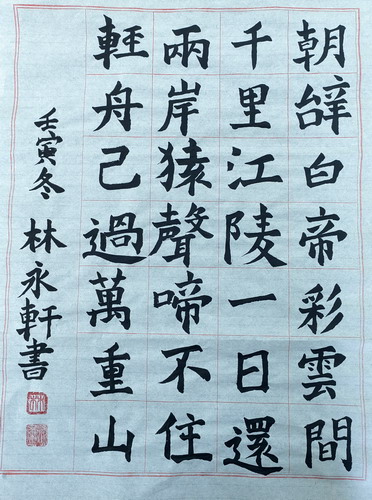 朝辤白帝彩雲間
千里江陵一日還
兩岸猿聲啼不住
輕舟己過萬重山
壬寅冬 林永軒書